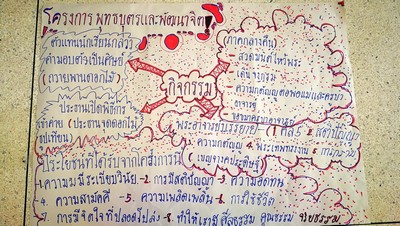 โครงการ พุทธบุตรและพัฒนาจิต
ตัวแทนนักเรียนกล่าว
คำมอบตัวเป็นศิษย์
(ถวายพานดอกไม้)
กิจกรรม
(ภาคกลางคืน)
- สวดมนต์ไหว้พระ
เดินจงกรม
- ความกตัญญูต่อพ่อแม่และครูบา
อาจารย์
ประธานเปิดพิธีการ
เข้าค่าย (ประธานจุดดอกไม้
ธูปเทียน)
พระอาจารย์บรรยาย 1. ศีล 5
3. ความกตัญญู
เบญจางคประดิษฐ์
ประโยชน์ที่ได้รับจากโครงการนี้
1. ความมีระเบียบวินัย 2. การมีสติปัญญา 3. ความอดทน
4. ความสามัคคี 5. ความเพลิดเพลิน 6. การใช้ชีวิต
7. การมีจิตใจที่ปลอดโปร่ง 8. ทำให้เรามี ศีลธรรม คุณธรรม จริยธรรม